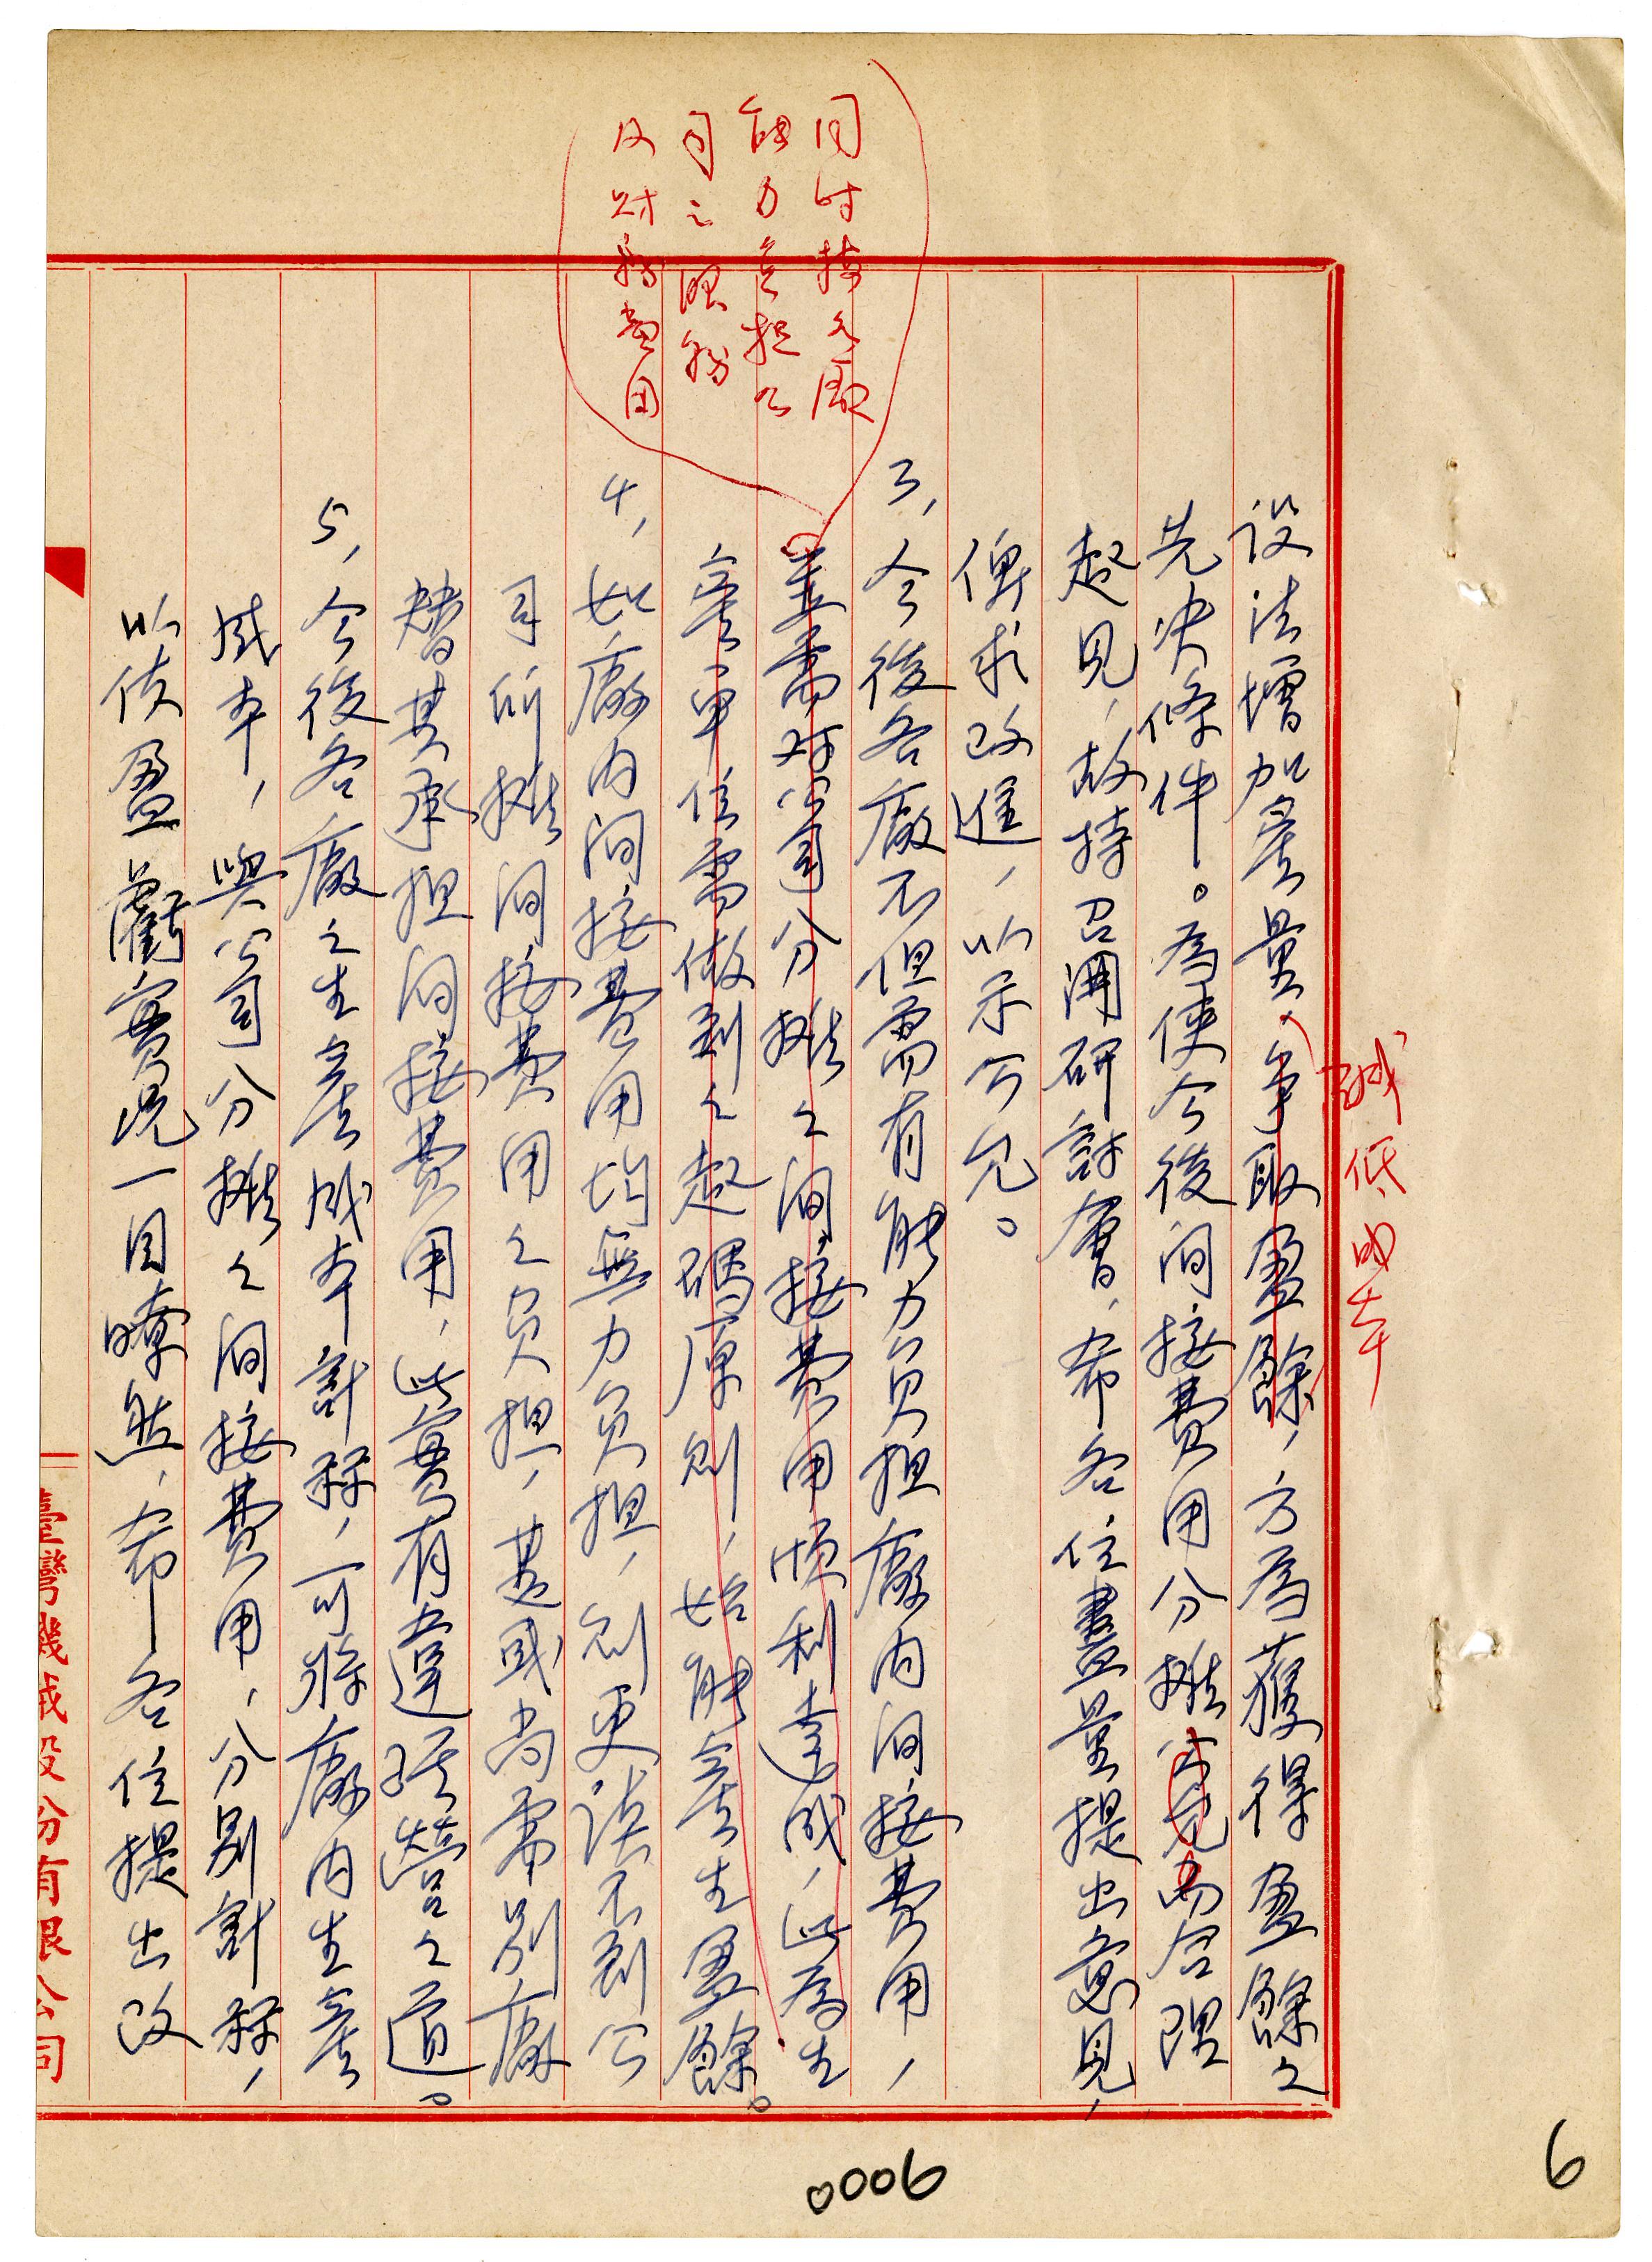 減低成本
設法增加產量，爭取盈餘，方為獲得盈餘之
先決條件。為使今後间接費用分攤公允而合理
起見，故持召開研討會，希各位盡量提出意見，
俾求改進，以示公允。
3，今後各廠不但需有能力負担廠内间接費用，
並需对公司分攤之间接費用順利達成，此為生
產單位需做到之起碼原則，始能產生盈餘。
同时
能力負担公
司之服務
及財務費用
4，如廠内间接費用均無力負担，則更談不到公
司所攤间接費用之負担，甚或尚需別廠
替其承担间接費用，此實有違經營之道。
5，今後各廠之生產成本計算，可將廠内生產
成本，與公司分攤之间接費用，分別計算，
以使盈虧實况一目瞭然，希各位提出改
臺灣機械股份有限公司
0006
6